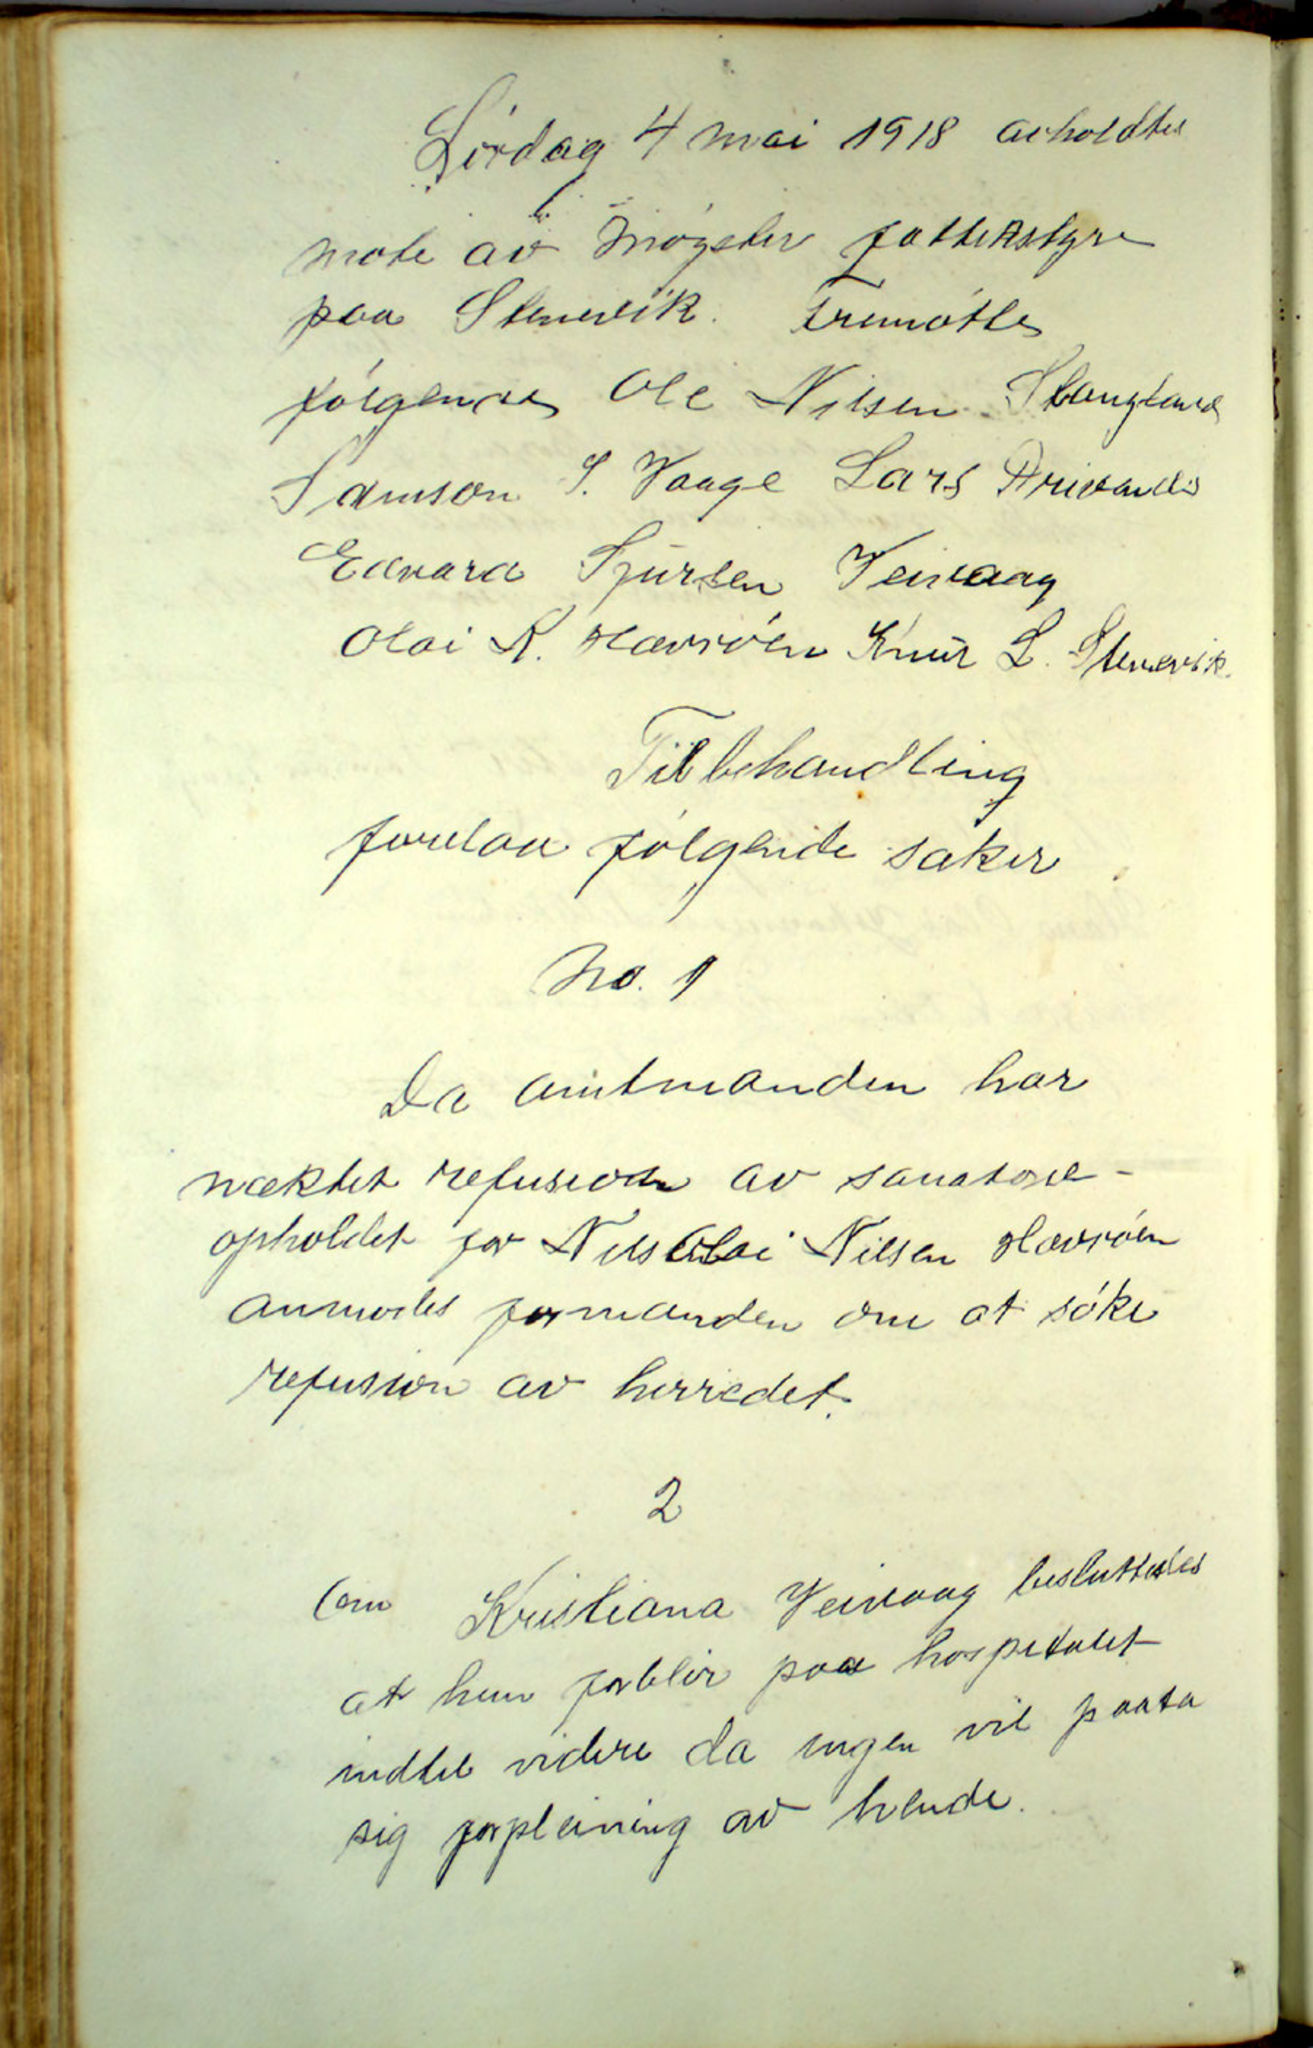 Lördag 4 mai 1918 avholdtes
møte av Møgster fattikstyre
paa Stenevik. Fremøtte
følgende Ole Nilsen Stangeland
Samson S. Vaage Lars Drivenes
Edvard Sjursen Veivaag
Olai K. Havrøen Knut L. Stenevik.
Til behandling
forelaa følgende saker
No. 1
Da amtmanden har
nektet refusion av sanatorie-
opholdet for Nils Olai Nilsen Havrøen
anmodes formanden om at søke
refusion av herredet.
2
Om Kristiana Veivaag besluttedes
at hun forblir paa hospitalet
indtil videre da ingen vil paata
sig forpleining av hende.